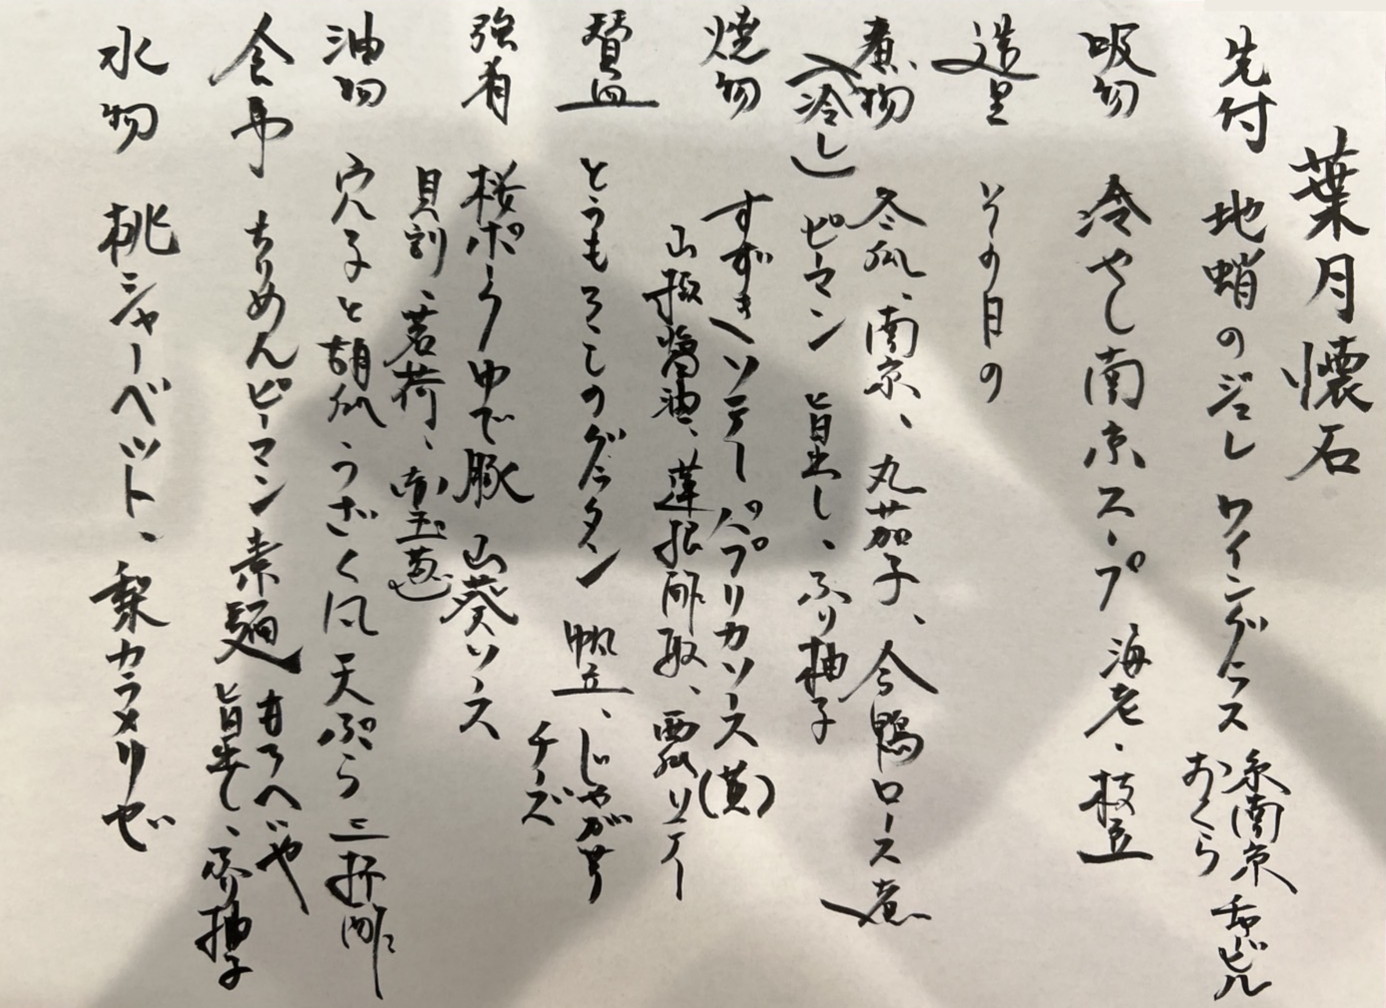 葉月懐石
先付 地蛸のジュレ ワイングラス 糸南京 チャービル
おくら
吸物 冷やし南京スープ 海老、枝豆
造里 その日の
煮物 冬瓜、南京、丸茄子、合鴨ロース煮
(冷し) ピーマン 旨出し、ふり柚子
焼物 すずきソテー パプリカソース(黄)
山椒醤油、蓮根酢取、
賛皿 とうもろこしのグラタン 帆立、じゃが芋
チーズ
強肴 桜ポーク ゆで豚 山葵ソース
貝割、茗荷、赤玉葱
油物 穴子と胡瓜うざく風天ぷら 三杯酢
食事 ちりめんピーマン素麺 もろへいや
旨出し、ふり柚子
水物 桃シャーベット、梨カラメリゼ